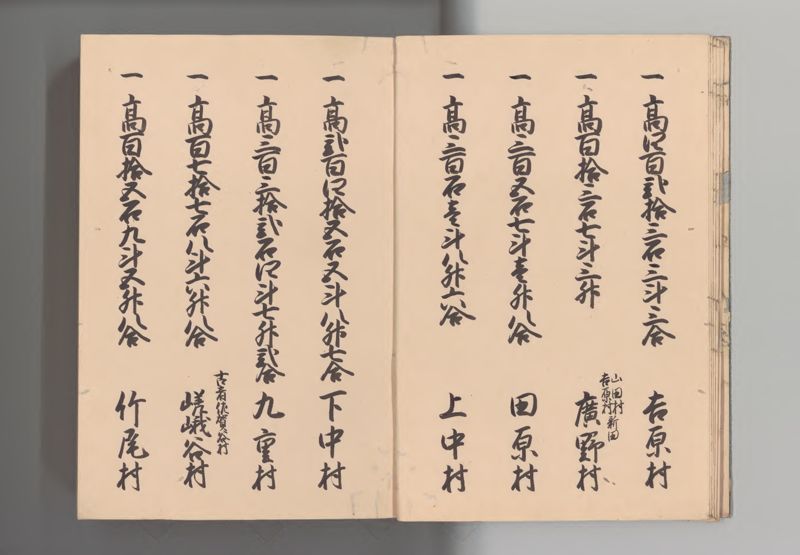 一 高四百弐拾三石三斗三合 吉原村
一 高百拾三石七斗三升 廣野村
山田村
吉原村 新田
一 高三百五石七斗壱升八合 田原村
一 高三百石壱斗八升六合 上中村
一 高弐百四拾五石五斗八升七合 下中村
一 高三百三拾弐石四斗七升弐合 九重村
一 高百七拾七石八斗六升八合 嵯峨谷村
古者佐賀谷村
一 高百拾五石九斗五升八合 竹尾村